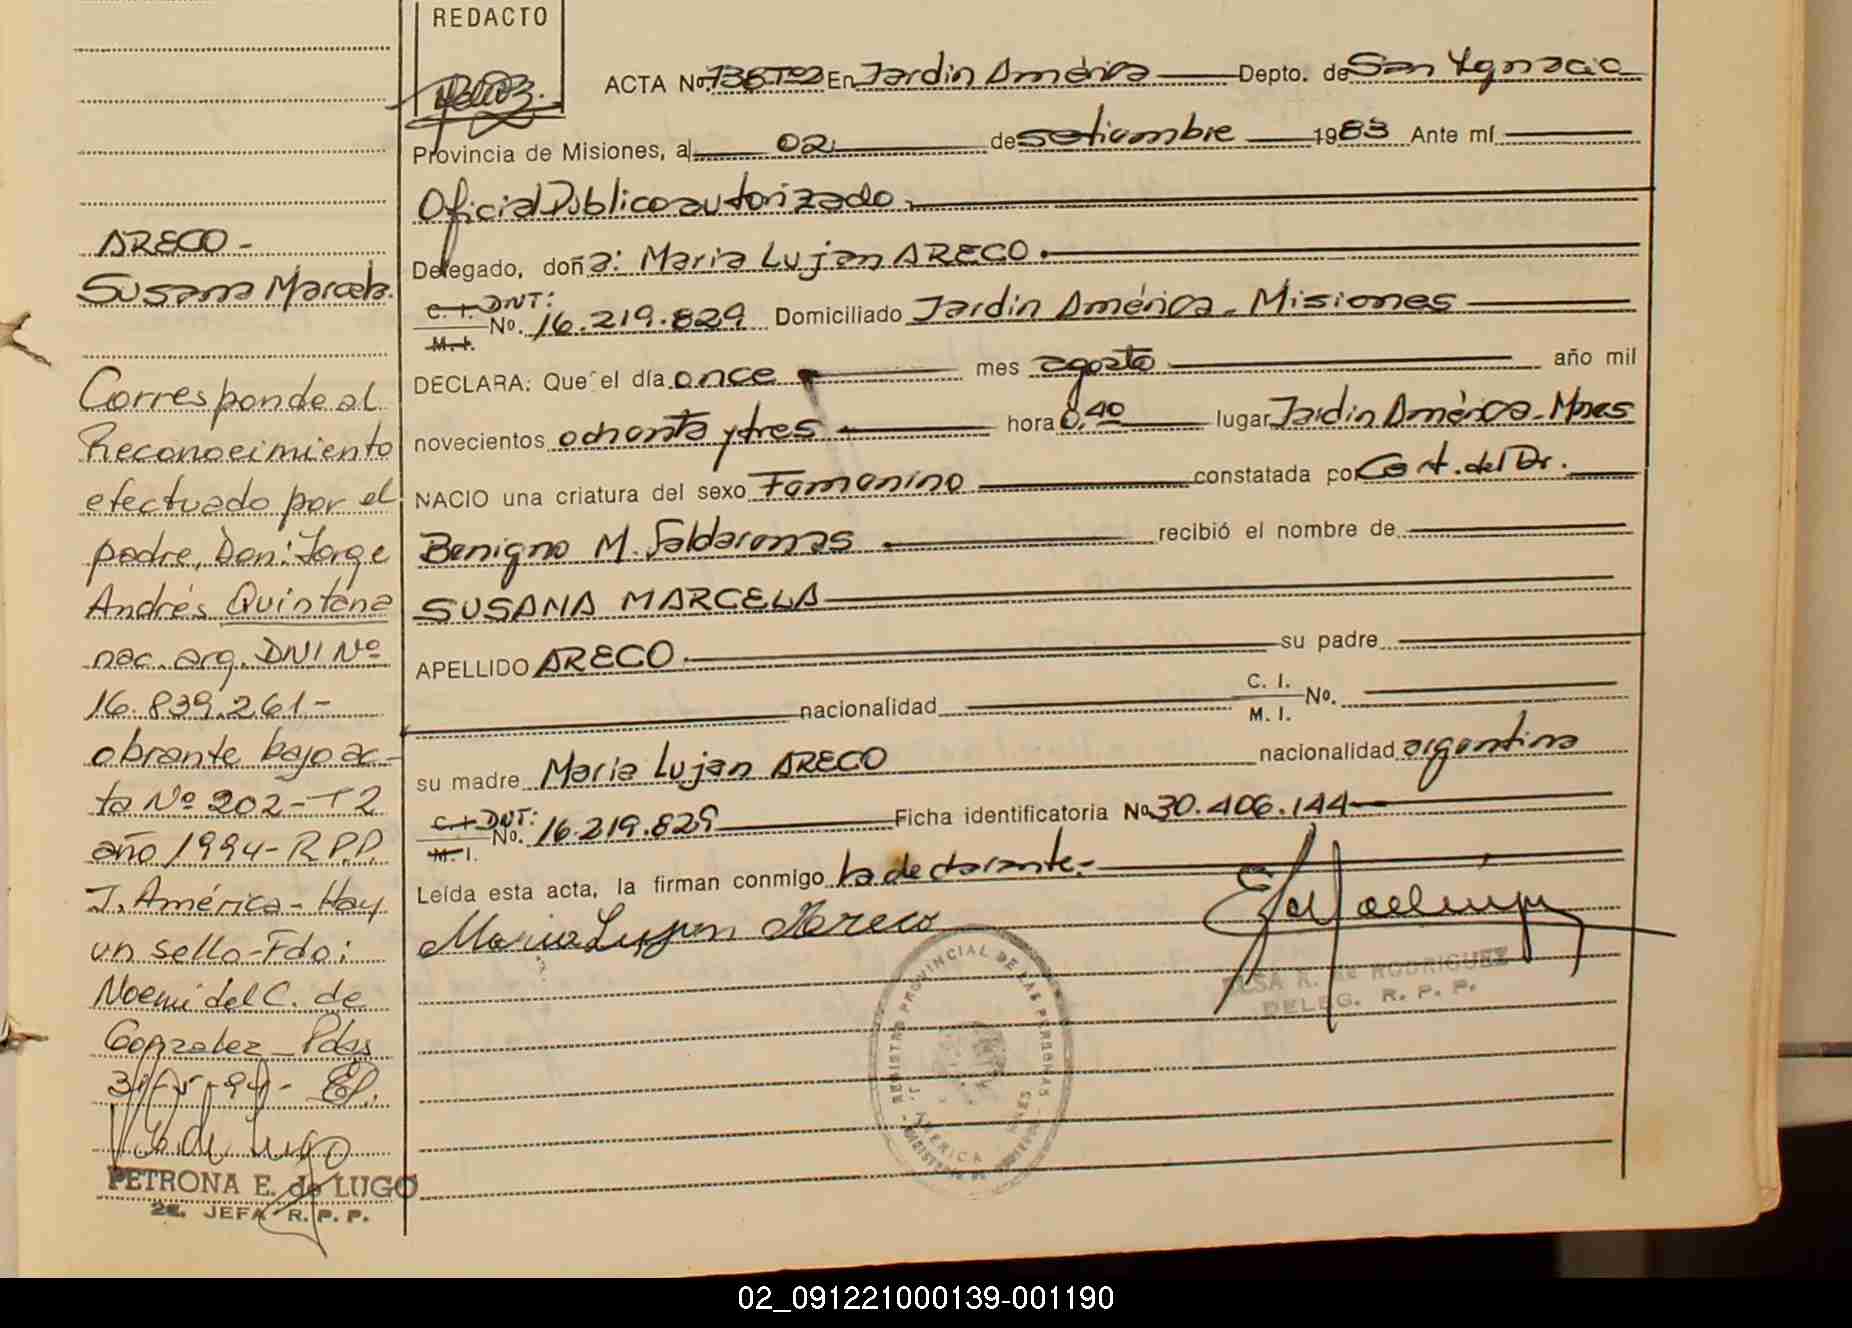 REDACTO
ACTA No. 738 T°2 En Jardin América Depto. de San Ygnacio
Provincia de Misiones, a 02 de setiembre 1983 Ante mí
Oficial Público autorizado
Delegado, doña: Maria Lujan ARECO.
C. I. DNI:
No. 16.219.829 Domiciliado Jardin América - Misiones
M. I.
DECLARA: Que el día once mes agosto año mil
novecientos ochenta y tres hora 0,40 lugar Jardin América - Mnes
NACIO una criatura del sexo Femenino constatada por Cert. del Dr.
Benigno M. recibió el nombre de
SUSANA MARCELA
APELLIDO ARECO. su padre
nacionalidad C. I. No.
M. I.
su madre Maria Lujan ARECO nacionalidad argentina
C. I. DNI: No. 16.219.829 Ficha identificatoria No. 30.406.144
M. I.
Leída esta acta, la firman conmigo la declarante.-
Maria Lujan Areco
REGISTRO PROVINCIAL DE LAS PERSONAS
J. AMERICA MNES
ELSA R. de RODRIGUEZ
DELEG. R. P. P.
ARECO -
Susana Marcela.
Corresponde al
Reconocimiento
efectuado por el
padre, Don: Jorge
Andrés Quintana
nac. arg. DNI Nº
16.839.261-
obrante bajo ac-
ta Nº 202-T2
año 1994-R.P.P.
J. América - Hay
un sello-Fdo:
Noemi del C. de
Gonzalez - Pdas
PETRONA E. de LUGO
2a. JEFA R. P. P.
02_091221000139-001190